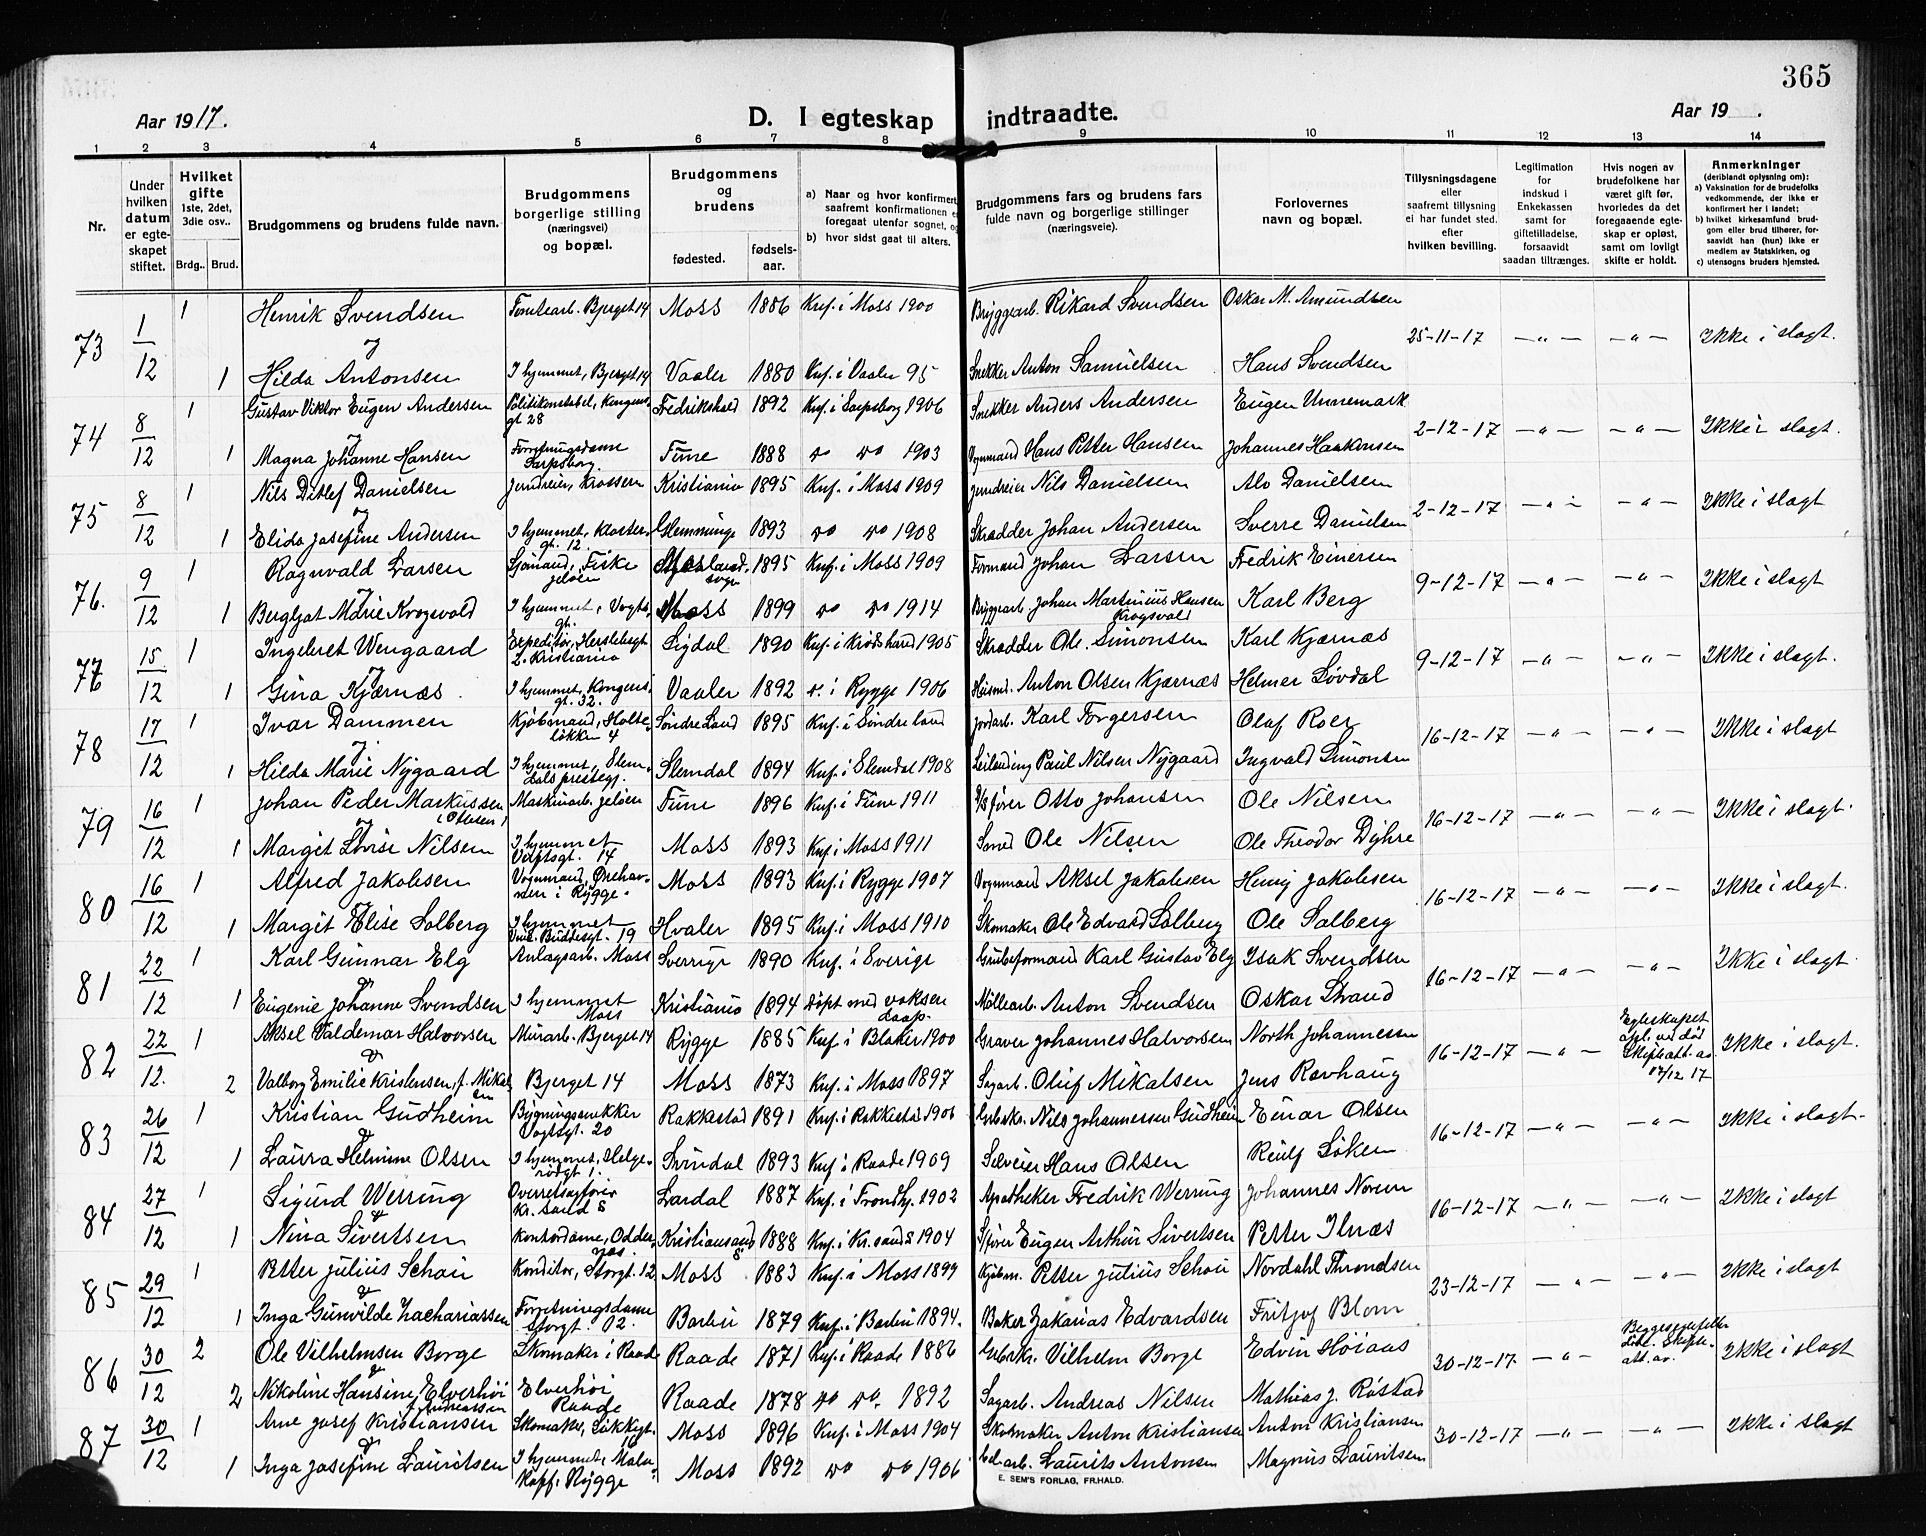 365
Aar 1917.
D. I egteskap indtraadte.
Aar 19 .
1 2 3 4 5 6 7 8 9 10 11 12 13 14
Nr.
Under hvilken datum er egteskapet stiftet.
Hvilket gifte 1ste, 2det, 3die osv..
Brdg.. Brud.
Brudgommens og brudens fulde navn.
Brudgommens borgerlige stilling (næringsvei) og bopæl.
Brudgommens og brudens
fødested. fødselsaar.
a) Naar og hvor konfirmert saafremt konfirmationen er foregaat utenfor sognet, og
b) hvor sidst gaat til alters.
Brudgommens fars og brudens fars fulde navn og borgerlige stillinger (næringsveie).
Forlovernes navn og bopæl.
Tillysningsdagene eller saafremt tillysning ei har fundet sted. efter hvilken bevilling.
Legitimation for indskud i Enkekassen samt for giftetilladelse, forsaavidt saadan tiltrænges.
Hvis nogen av brudefolkene har været gift før, hvorledes da det foregaaende egteskap er opløst, samt om lovligt skifte er holdt.
Anmerkninger (deriblandt oplysning om): a) Vaksination for de brudefolks vedkommende, der ikke er konfirmert her i landet; b) hvilket kirkesamfund brudgom eller brud tilhører, forsaavidt han (hun) ikke er medlem av Statskirken, og c) utensogns bruders hjemsted.
73 1/12 1 Henrik Svendsen Bjerget 14 Moss 1886 Knf. i Moss 1900 Bryggearb. Rikard Svendsen Oskar M. Amundsen 25-11-17 — „ — — „ — Ikke i slagt.
og
1 Hilda Antonsen I hjemmet, Bjerget 14 Vaaler 1880 Knf. i Vaaler 95 Snekker Anton Samuelsen Hans Svendsen
74 8/12 1 Gustav Viktor Eugen Andersen Politikonstabel, Kongensgt 28 Fredrikshald 1892 Knf. i Sarpsborg 1906 Snekker Anders Andersen Eugen Unnemark 2-12-17 — „ — — „ — Ikke i slagt.
og
1 Magna Johanne Hansen Forretningsdame Sarpsborg. Tune 1888 do do 1903 Vognmand Hans Petter Hansen Johannes Haakonsen
75 8/12 1 Nils Ditlef Danielsen Jerndreier, Krossern Kristiania 1895 Knf. i Moss 1909 Jerndreier Nils Danielsen Alv Danielsen 2-12-17 — „ — — „ — Ikke i slagt
og
1 Elida Josefine Andersen I hjemmet, Klostergt. 12 Glemminge 1893 do do 1908 Skrædder Johan Andersen Sverre Danielsen
76. 9/12 1 Ragnvald Larsen Sjømand, Fiske Jeløen 1895 Knf. i Moss 1909 Formand Johan Larsen Fredrik Einersen 9-12-17 — „ — — „ — Ikke i slagt
og
1 Bergljot Marie Krogsvold I hjemmet, Vogtsgt. Moss 1899 do do 1914 Bryggearb. Johan Martinius Hansen Krogsvold Karl Berg
77 15/12 1 Ingebret Wengaard Expeditør, Herslebsgt 2. Kristiania Sigdal 1890 Knf. i Krødsherad 1905 Skrædder Ole Simonsen Karl Kjærnæs 9-12-17 — „ — — „ — Ikke i slagt.
og
1 Gina Kjærnæs. I hjemmet, Kongensgt. 32. Vaaler 1892 i Rygge 1906 Husmd. Anton Olsen Kjærnæs Helmer Løvdal
78 17/12 1 Ivar Dammen Kjøbmand, Holteløkken 4 Søndre Land 1895 Knf. i Søndre Land Jordarb. Karl Torgersen Olaf Roer 16-12-17 — „ — — „ — Ikke i slagt
og
1 Hilda Marie Nygaard I hjemmet, Slemdals prestegj. Slemdal 1894 Knf. i Slemdal 1908 Leilending Paul Nilsen Nygaard Ingvald Simonsen
79 16/12 1 Johan Peder Markussen (Ottesen) Maskinarb. Jeløen Tune 1896 Knf. i Tune 1911 S/fører Otto Johansen Ole Nilsen 16-12-17 — „ — — „ — Ikke i slagt.
og
1 Margit Lovise Nilsen I hjemmet Vogtsgt. 14 Moss 1893 Knf. i Moss 1911 Smed Ole Nilsen Ole Theodor Dyhre
80 16/12 1 Alfred Jakobsen Vognmand, Ørehavnen i Rygge. Moss 1893 Knf. i Rygge 1907 Vognmand Aksel Jakobsen Henry Jakobsen 16-12-17 — „ — — „ — Ikke i slagt.
og
1 Margit Elise Solberg I hjemmet Buddesgt. 19 Hvaler 1895 Knf. i Moss 1910 Skomaker Ole Edvard Solberg Ole Solberg
81 22/12 1 Karl Gunnar Elg Anlagsarb. Moss Sverrige 1890 Knf. i Sverige Grubeformand Karl Gustav Elg Isak Svendsen 16-12-17 — „ — — „ — Ikke i slagt.
og
1 Eugenie Johanne Svendsen I hjemmet Moss Kristiania 1894 døpt med voksen daap. Møllearb. Anton Svendsen Oskar Strand
82 22/12. 1 Aksel Valdemar Halvorsen Murarb. Bjerget 14 Rygge 1885 Knf. i Blaker 1900 Graver Johannes Halvorsen North Johannessen 16-12-17 — „ — Egteskapet opl. ved død Skifteatt. av 17/12 17 Ikke i slagt.
og
2 Valborg Emilie Kristensen, f. Mikalsen Bjerget 14 Moss 1873 Knf. i Moss 1897 Sagarb. Oluf Mikalsen Jens Ravhaug
83 26/12 1 Kristian Gudheim Bygningssnekker Vogtsgt. 20 Rakkestad 1891 Knf. i Rakkestad 1906 Grbskr. Nils Johannessen Gudheim Einar Olsen 16-12-17 — „ — — „ — Ikke i slagt.
og
1 Laura Helmine Olsen I hjemmet, Helgerødgt 1. Svindal 1893 Knf. i Raade 1909 Selveier Hans Olsen Reulf Løken
84 27/12 1 Sigurd Werring Overretssagfører Kr.sand S Lardal 1887 Knf. i Trondhj. 1902 Apotheker Fredrik Werring Johannes Noren 16-12-17 — „ — — „ — Ikke i slagt
og
1 Nina Sivertsen Kontordame, Oddernæs. Kristiansand S 1888 Knf. i Kr.sand S 1904 S/fører Eugen Arthur Sivertsen Petter Ilnæs
85 29/12 1 Petter Julius Schou Konditor, Storgt. 12 Moss 1883 Knf. i Moss 1899 Kjøbm. Petter Julius Schou Nordahl Throndsen 23-12-17 — „ — — „ — Ikke i slagt
og
1 Inga Gunvilde Zachariassen Forretningsdame Storgt. 12. Barbu 1879 Knf. i Barbu 1894. Baker Zakarias Edvardsen Fritjof Blom
86 30/12 2 Ole Vilhelmsen Borge Skomaker i Raade Raade 1871 Knf. i Raade 1886 Grbskr. Vilhelm Borge Edvin Høiaas 30-12-17 — „ — Begges død. Skifteatt. av. Ikke i slagt
og
2 Nikoline Hansine Elverhøi f. Andreassen Elverhøi Raade Raade 1878 do do. 1892 Sagarb. Andreas Nilsen Mathias J. Røstad
87 30/12 1 Arne Josef Kristiansen Skomaker, Løkkegt. 16 Moss 1896 Knf. i Moss 1904 Skomaker Anton Kristiansen Anton Kristiansen 30-12-17 — „ — — „ — Ikke i slagt
og
1 Inga Josefine Lauritsen I hjemmet, Rygge Moss 1892 do do 1906 arb. Laurits Antonsen Magnus Lauritsen
E. SEM'S FORLAG, FR.HALD.